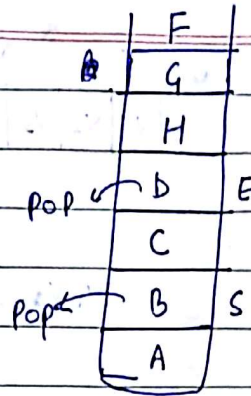 F
G
H
pop D E
C
pop B S
A